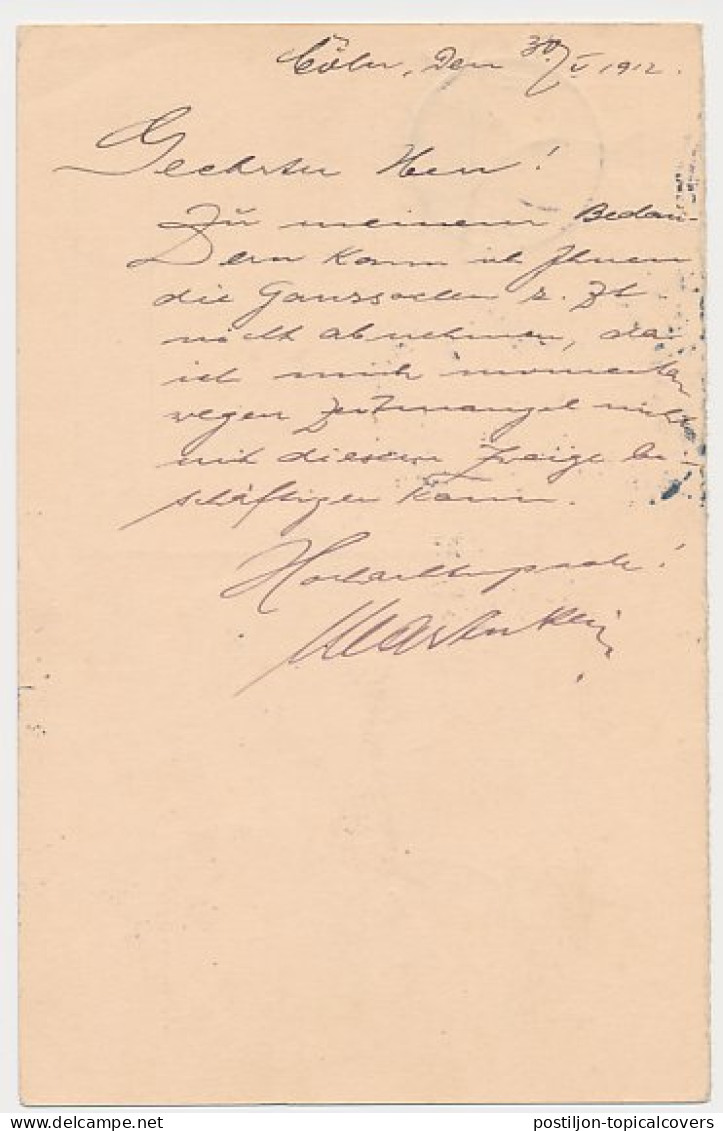 Cöln, den 30/V 1912.
Geehrter Herr!
Zu meinem Bedau-
ern kann ich Ihnen
die z. Zt.
nicht abnehmen, da
ich mich momentan
wegen Zeitmangel nicht
mit diesem Zweige be-
schäftigen kann.
Hochachtungsvoll!
postiljon-topicalcovers